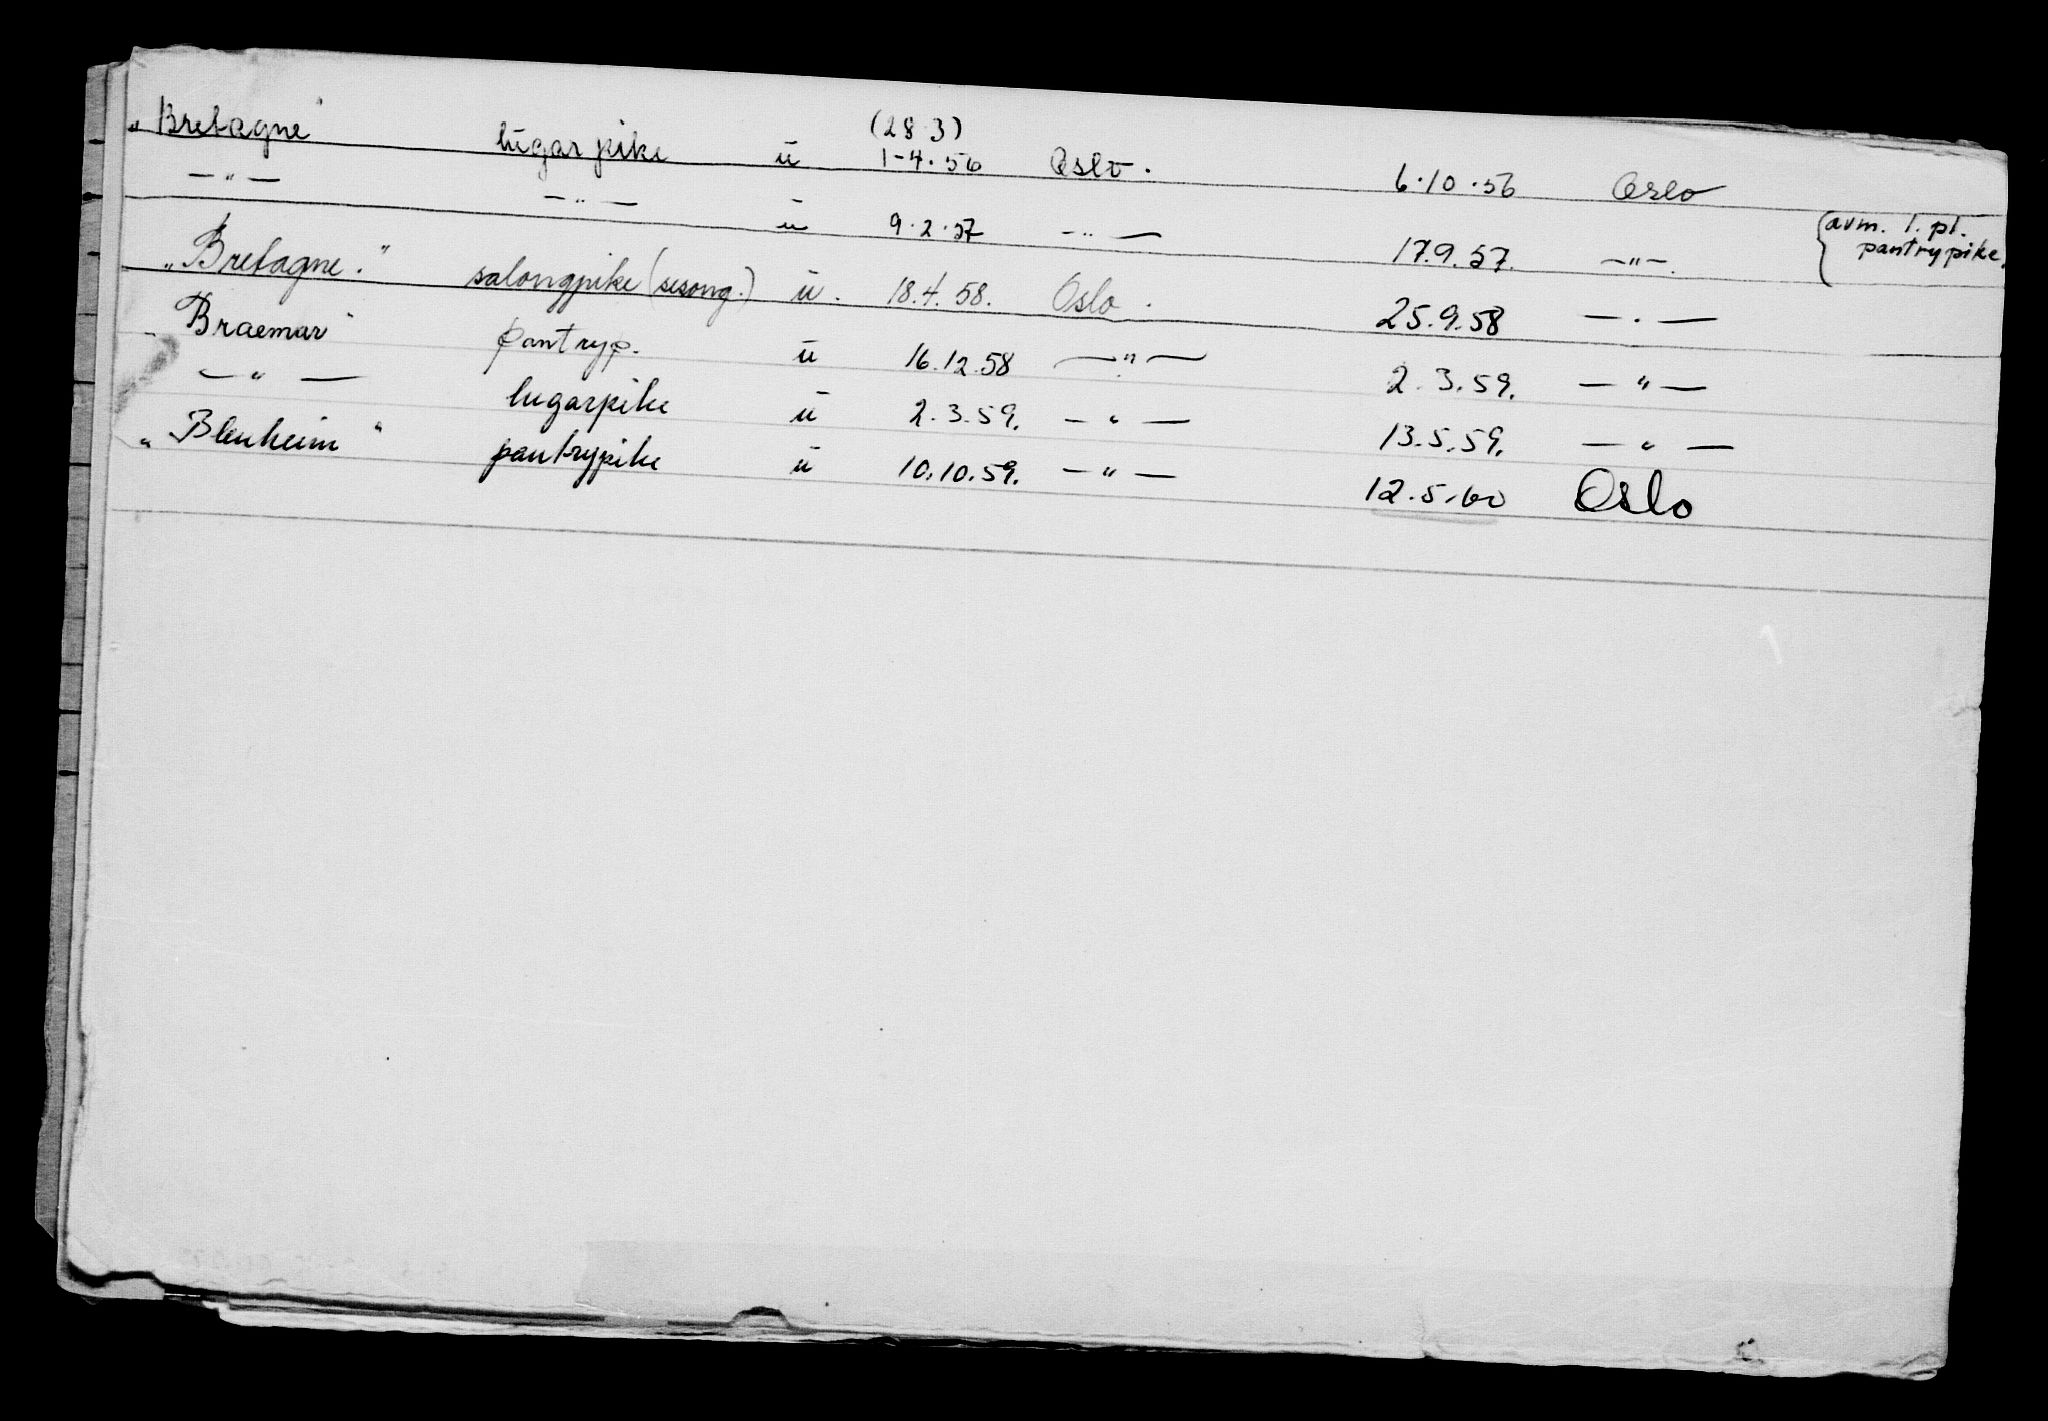 (28.3)
„Bretagne" lugarpike ü 1-4.56 Oslo. 6.10.56 Oslo
—„— —„— ü 9.2.57 —„— 17.9.57. —„—. {avm. 1. pl. pantrypike.
„Bretagne." salongpike (sesong.) ü. 18.4.58. Oslo. 25.9.58 —„—
„Braemar" pantryp. ü 16.12.58 —„— 2.3.59. —„—
—„— lugarpike ü 2.3.59. —„— 13.5.59. —„—
„Blenheim" pantrypike ü 10.10.59. —„— 12.5.60 Oslo